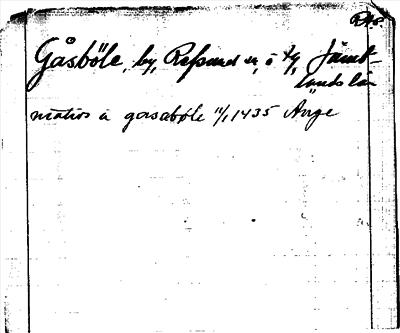 Gåsböle, by, Refsund sn, i Jämt-
lands län
matios a gasaböle 11/1 1435 Ånge